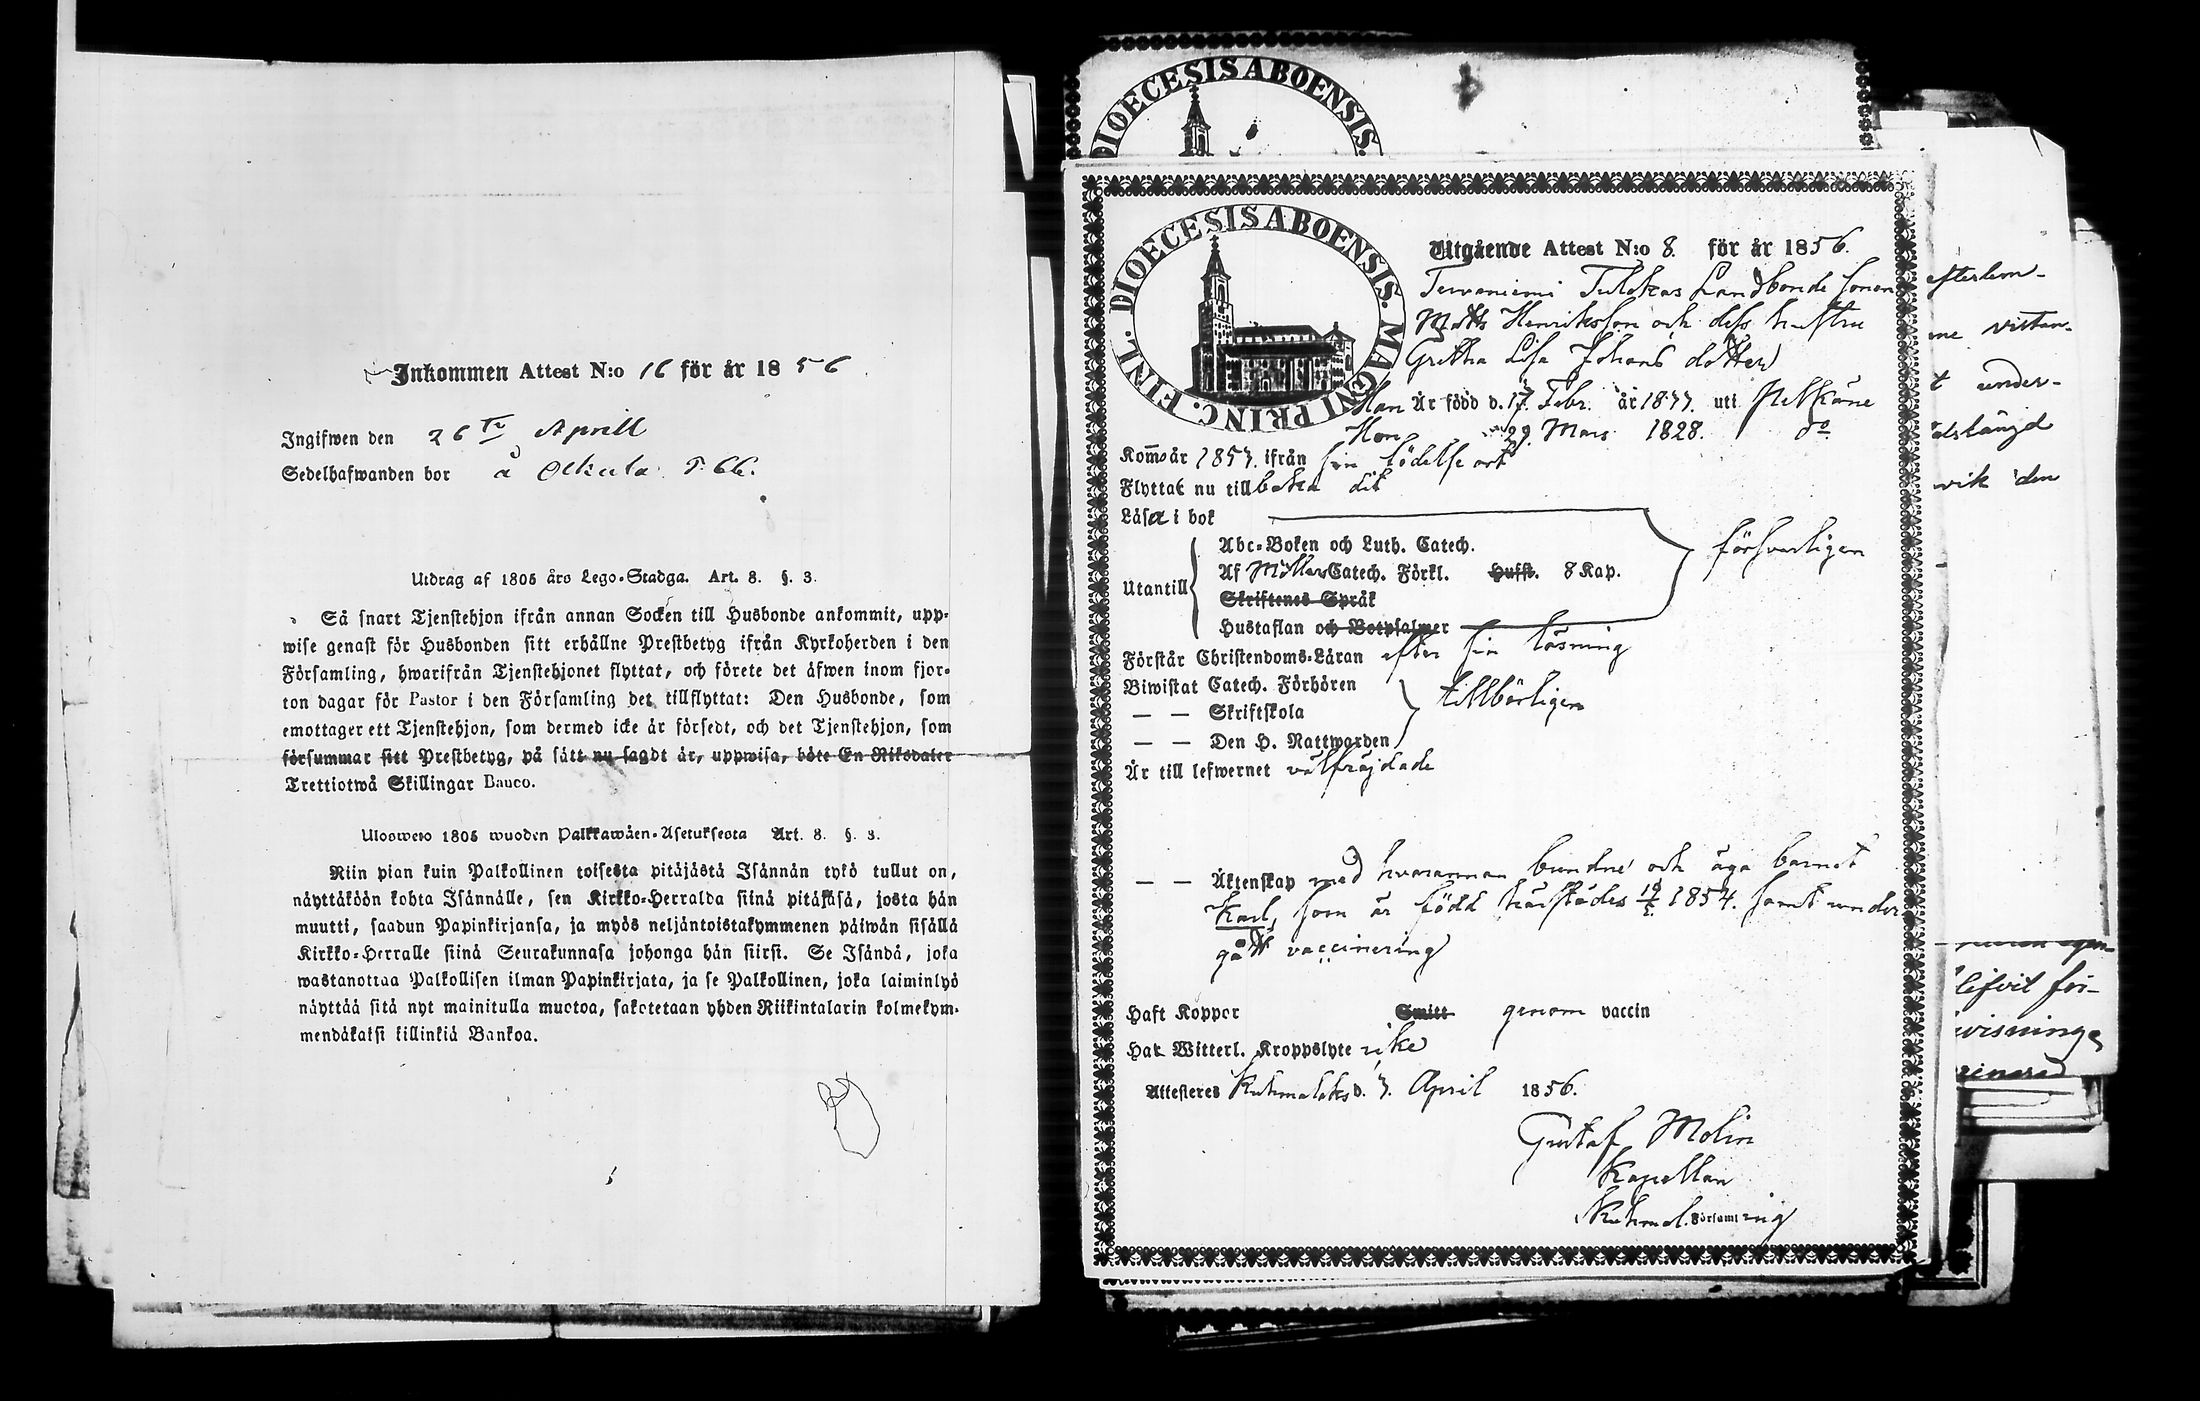 Inkommen Attest N:o 16 för år 1856
Ingifwen den 26te Aprill
Sedelhafwanden bor å
Utdrag af 1805 års Lego-Stadga. Art. 8. §. 3.
Så snart Tjenstehjon ifrån annan Socken till Husbonde ankommit, upp-
wise genast för Husbonden sitt erhållne Prestbetyg ifrån Kyrkoherden i den
Församling, hwarifrån Tjenstehjonet flyttat, och förete det äfwen inom fjor-
ton dagar för Pastor i den Församling det tillflyttat: Den Husbonde, som
emottager ett Tjenstehjon, som dermed icke är försedt, och det Tjenstehjon, som
försummar sitt Prestbetyg, på sätt nu sagdt är, uppwisa, böte En Riksdaler
Trettiotwå Skillingar Banco.
Ulosweto 1805 wuoden Palkkawäen-Asetuksesta Art. 8. §. 3.
Niin pian kuin Palkollinen toisesta pitäjästä Isännän tykö tullut on,
näyttäköön kohta Isännälle, sen Kirkko-Herralda siinä pitäjäsä, josta hän
muutti, saadun Papinkirjansa, ja myös neljäntoistakymmenen päiwän sisällä
Kirkko-Herralle siinä Seurakunnasa johonga hän siirsi. Se Isändä, joka
wastanottaa Palkollisen ilman Papinkirjata, ja se Palkollinen, joka laiminlyö
näyttää sitä nyt mainitulla muotoa, sakotetaan yhden Riikintalarin kolmekym-
mendäkaksi killinkiä Bankoa.
DIOECESIS ABOENSIS.
FINL. DIOECESIS ABOENSIS. MAGNI PRINC.
Utgående Attest N:o 8. för år 1856.
Landbonde sonen
Matts Henriksson och dess hustru
Gretha Lisa Johans dotter
Han Är född d. 17 Febr. år uti
Hon 29. Mars 1828. do
Kom år ifrån sin födelse ort
Flyttat nu tillbaka dit
Läsa i bok
Abc-Boken och Luth. Catech.
försvarligen
Utantill
Af Möllers Catech. Förkl. Husst. 8 Kap.
Skriftenes Språk
Hustaflan och Botpsalmer
Förstår Christendoms-Läran efter sin läsning
Biwistat Catech. Förhören
tillbörligen
— — Skriftskola
— — Den H. Nattwarden
Är till lefwernet välfräjdade
— — Äktenskap med hvarannan bundne och äga barnet
Karl, som är född härstädes 1854. samt under
gått vaccinering
Haft Koppor Smitt genom vaccin
Har Witterl. Kroppslyte icke
Attesteres Kuhmalaks d. 7. April 1856.
Gustaf Molin
Kapellan
Kuhmal. Församling
efterlem-
me vistan-
t under-
dslängd
vik den
lefvit för-